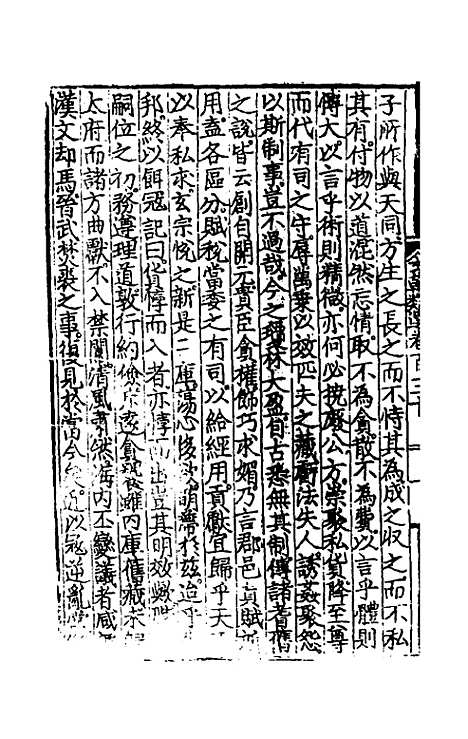 子所作與天同方生之長之而不恃其為成之收之而不私
其有付物以道混然忘情取不為貪散不為費以言乎體則
博大以言乎術則精微亦何必撓廢公方崇聚私貨降至尊
而代有司之守辱萬乗以效匹夫之藏虧法失人誘姦聚怨
以斯制事豈不過哉今之瓊林大盈自古悉無其制傳諸耆舊
之說皆云創自開元貴臣貪權飾巧求媚乃言郡邑貢賦所
用盍各區分賦稅當委之有司以給經用貢獻宜歸乎天
以奉私求玄宗悅之新是二庫蕩心侈欲萌蘗於兹迨乎
邦終以餌冦記曰貨悖而入者亦悖而出豈其明效歟
嗣位之初務遵理道敦行約儉斥逐貪饕雖内庫舊藏未
太府而諸方曲獻不入禁闈清風肅然海内丕變議者咸
漢文却馬晉武焚裘之事復見於當今矣近以冦逆亂